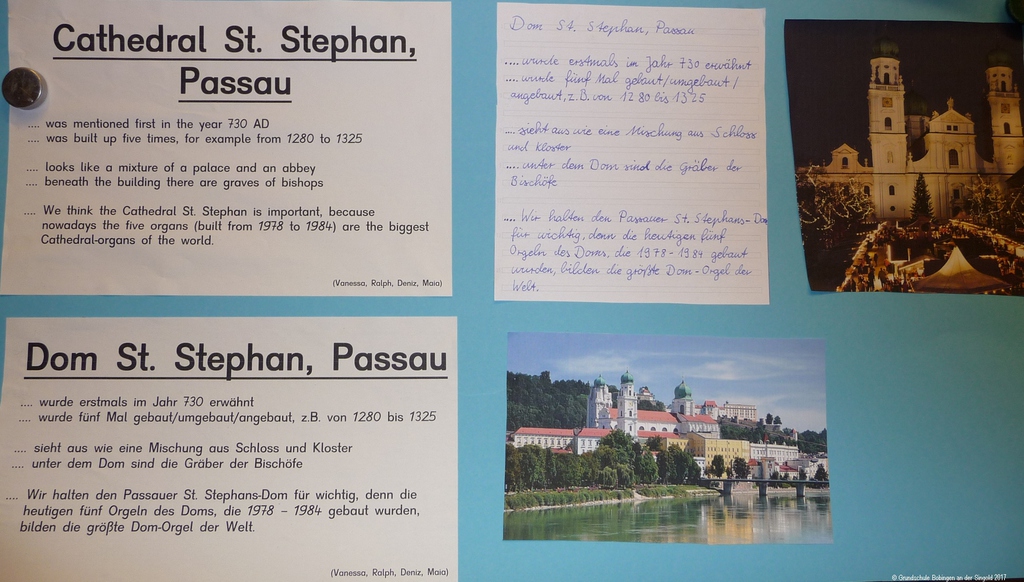 Cathedral St. Stephan,
Passau
.... was mentioned first in the year 730 AD
.... was built up five times, for example from 1280 to 1325
.... looks like a mixture of a palace and an abbey
.... beneath the building there are graves of bishops
.... We think the Cathedral St. Stephan is important, because
nowadays the five organs (built from 1978 to 1984) are the biggest
Cathedral-organs of the world.
(Vanessa, Ralph, Deniz, Maia)
Dom St. Stephan, Passau
.... wurde erstmals im Jahr 730 erwähnt
.... wurde fünf Mal gebaut/umgebaut/
angebaut, z.B. von 1280 bis 1325
.... sieht aus wie eine Mischung aus Schloss
und Kloster
.... unter dem Dom sind die Gräber der
Bischöfe
.... Wir halten den Passauer St. Stephans-Dom
für wichtig, denn die heutigen fünf
Orgeln des Doms, die 1978 - 1984 gebaut
wurden, bilden die größte Dom-Orgel der
Welt.
Dom St. Stephan, Passau
.... wurde erstmals im Jahr 730 erwähnt
.... wurde fünf Mal gebaut/umgebaut/angebaut, z.B. von 1280 bis 1325
.... sieht aus wie eine Mischung aus Schloss und Kloster
.... unter dem Dom sind die Gräber der Bischöfe
.... Wir halten den Passauer St. Stephans-Dom für wichtig, denn die
heutigen fünf Orgeln des Doms, die 1978 - 1984 gebaut wurden,
bilden die größte Dom-Orgel der Welt.
(Vanessa, Ralph, Deniz, Maia)
© Grundschule Bobingen an der Singold 2017